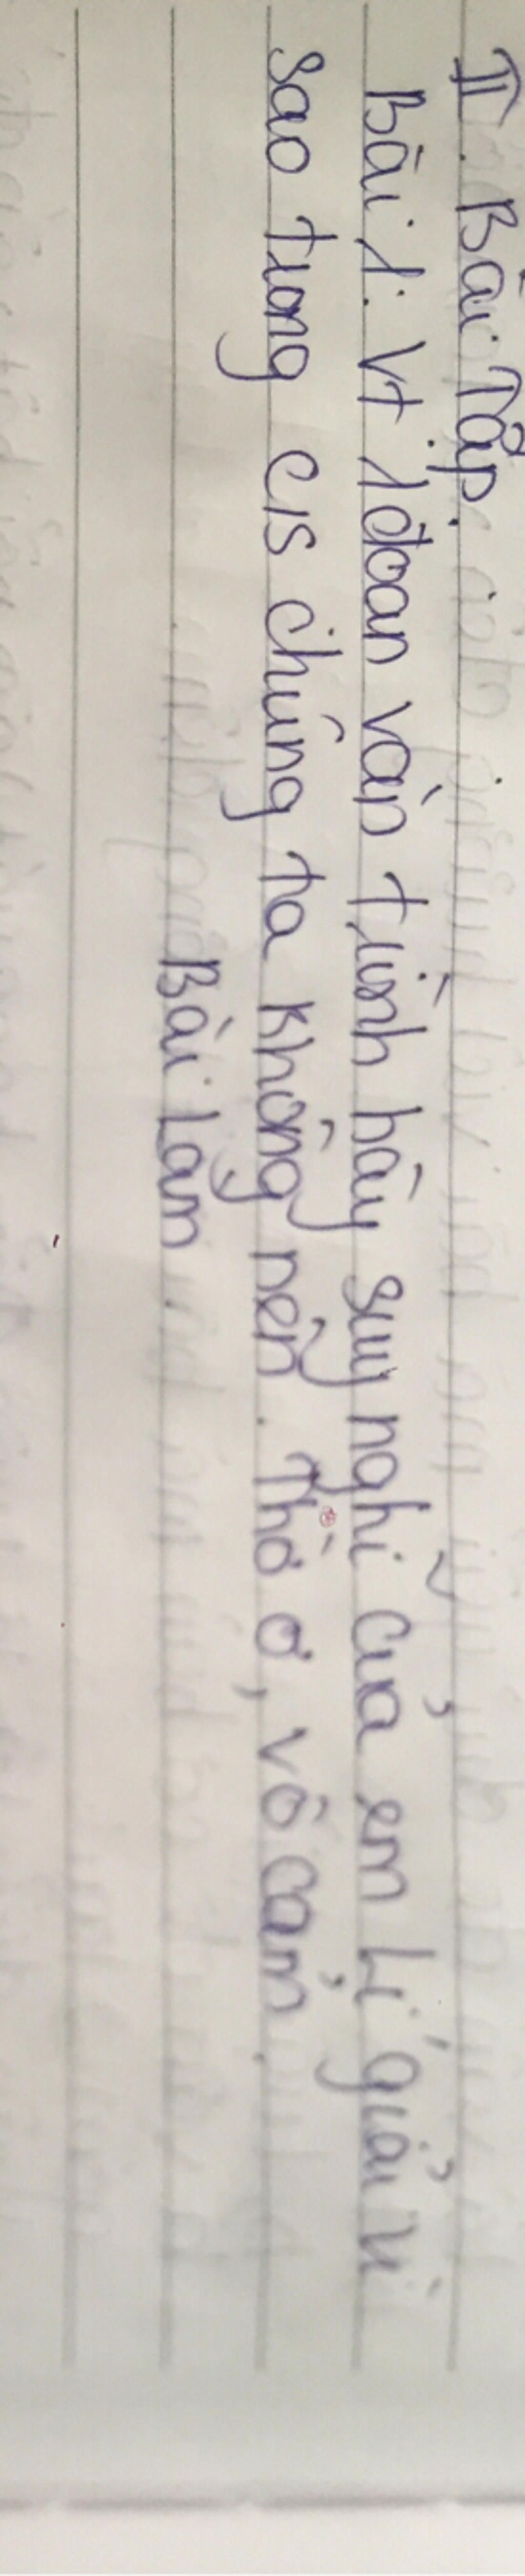 II. Bài Tập.
Bài 1: Vt 1 đoạn văn trình bày suy nghĩ của em Lí giải vì
sao trong c/s chúng ta không nên Thờ ơ, vô cảm.
Bài Làm